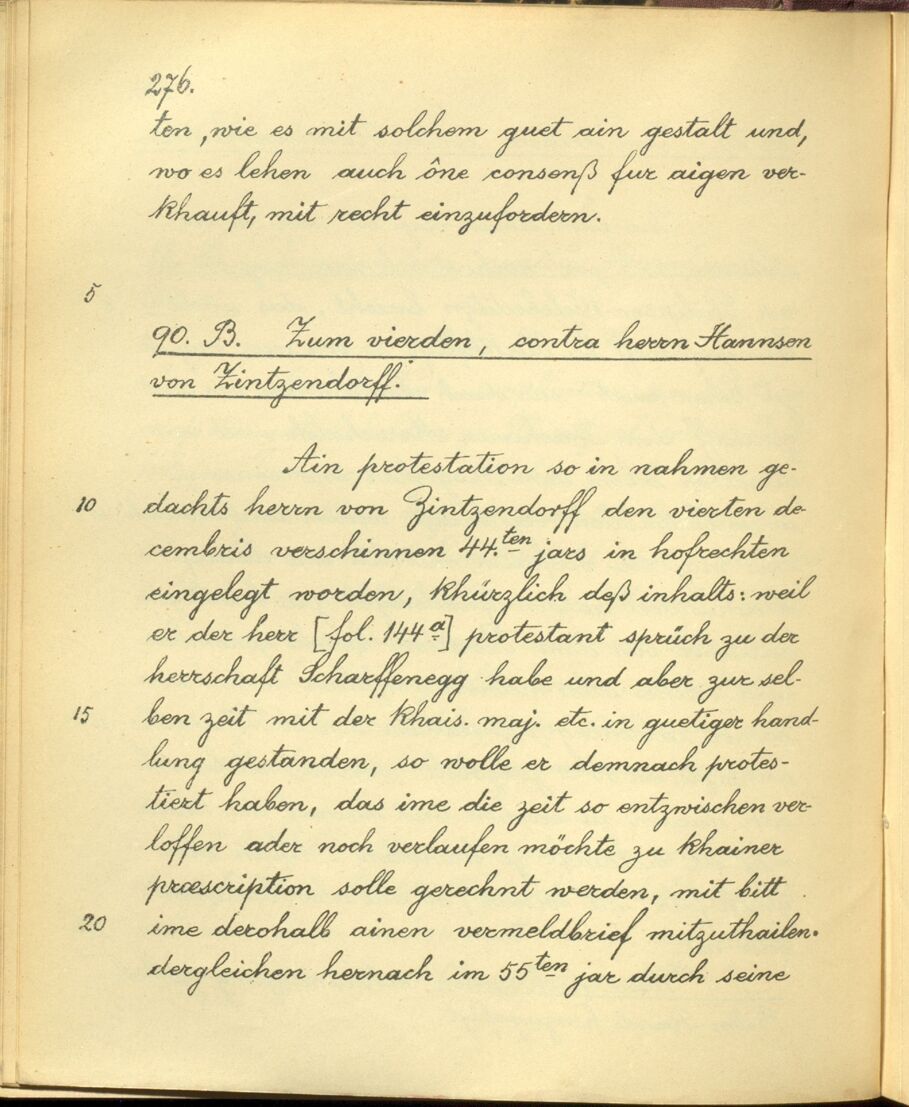 276.
ten, wie es mit solchem guet ain gestalt und,
wo es lehen auch ône consenß fur aigen ver-
khauft, mit recht einzufordern.
5
90. B. Zum vierden, contra herrn Hannsen
von Zintzendorff.
Ain protestation so in nahmen ge-
10 dachts herrn von Zintzendorff den vierten de-
cembris verschinnen 44.ten jars in hofrechten
eingelegt worden, khürzlich deß inhalts: weil
er der herr [fol. 144a] protestant sprüch zu der
herrschaft Scharffenegg habe und aber zur sel-
15 ben zeit mit der khais. maj. etc. in guetiger hand-
lung gestanden, so wolle er demnach protes-
tiert haben, das ime die zeit so entzwischen ver-
loffen ader noch verlaufen möchte zu khainer
præscription solle gerechnt werden, mit bitt
20 ime derohalb ainen vermeldbrief mitzuthailen.
dergleichen hernach im 55ten jar durch seine